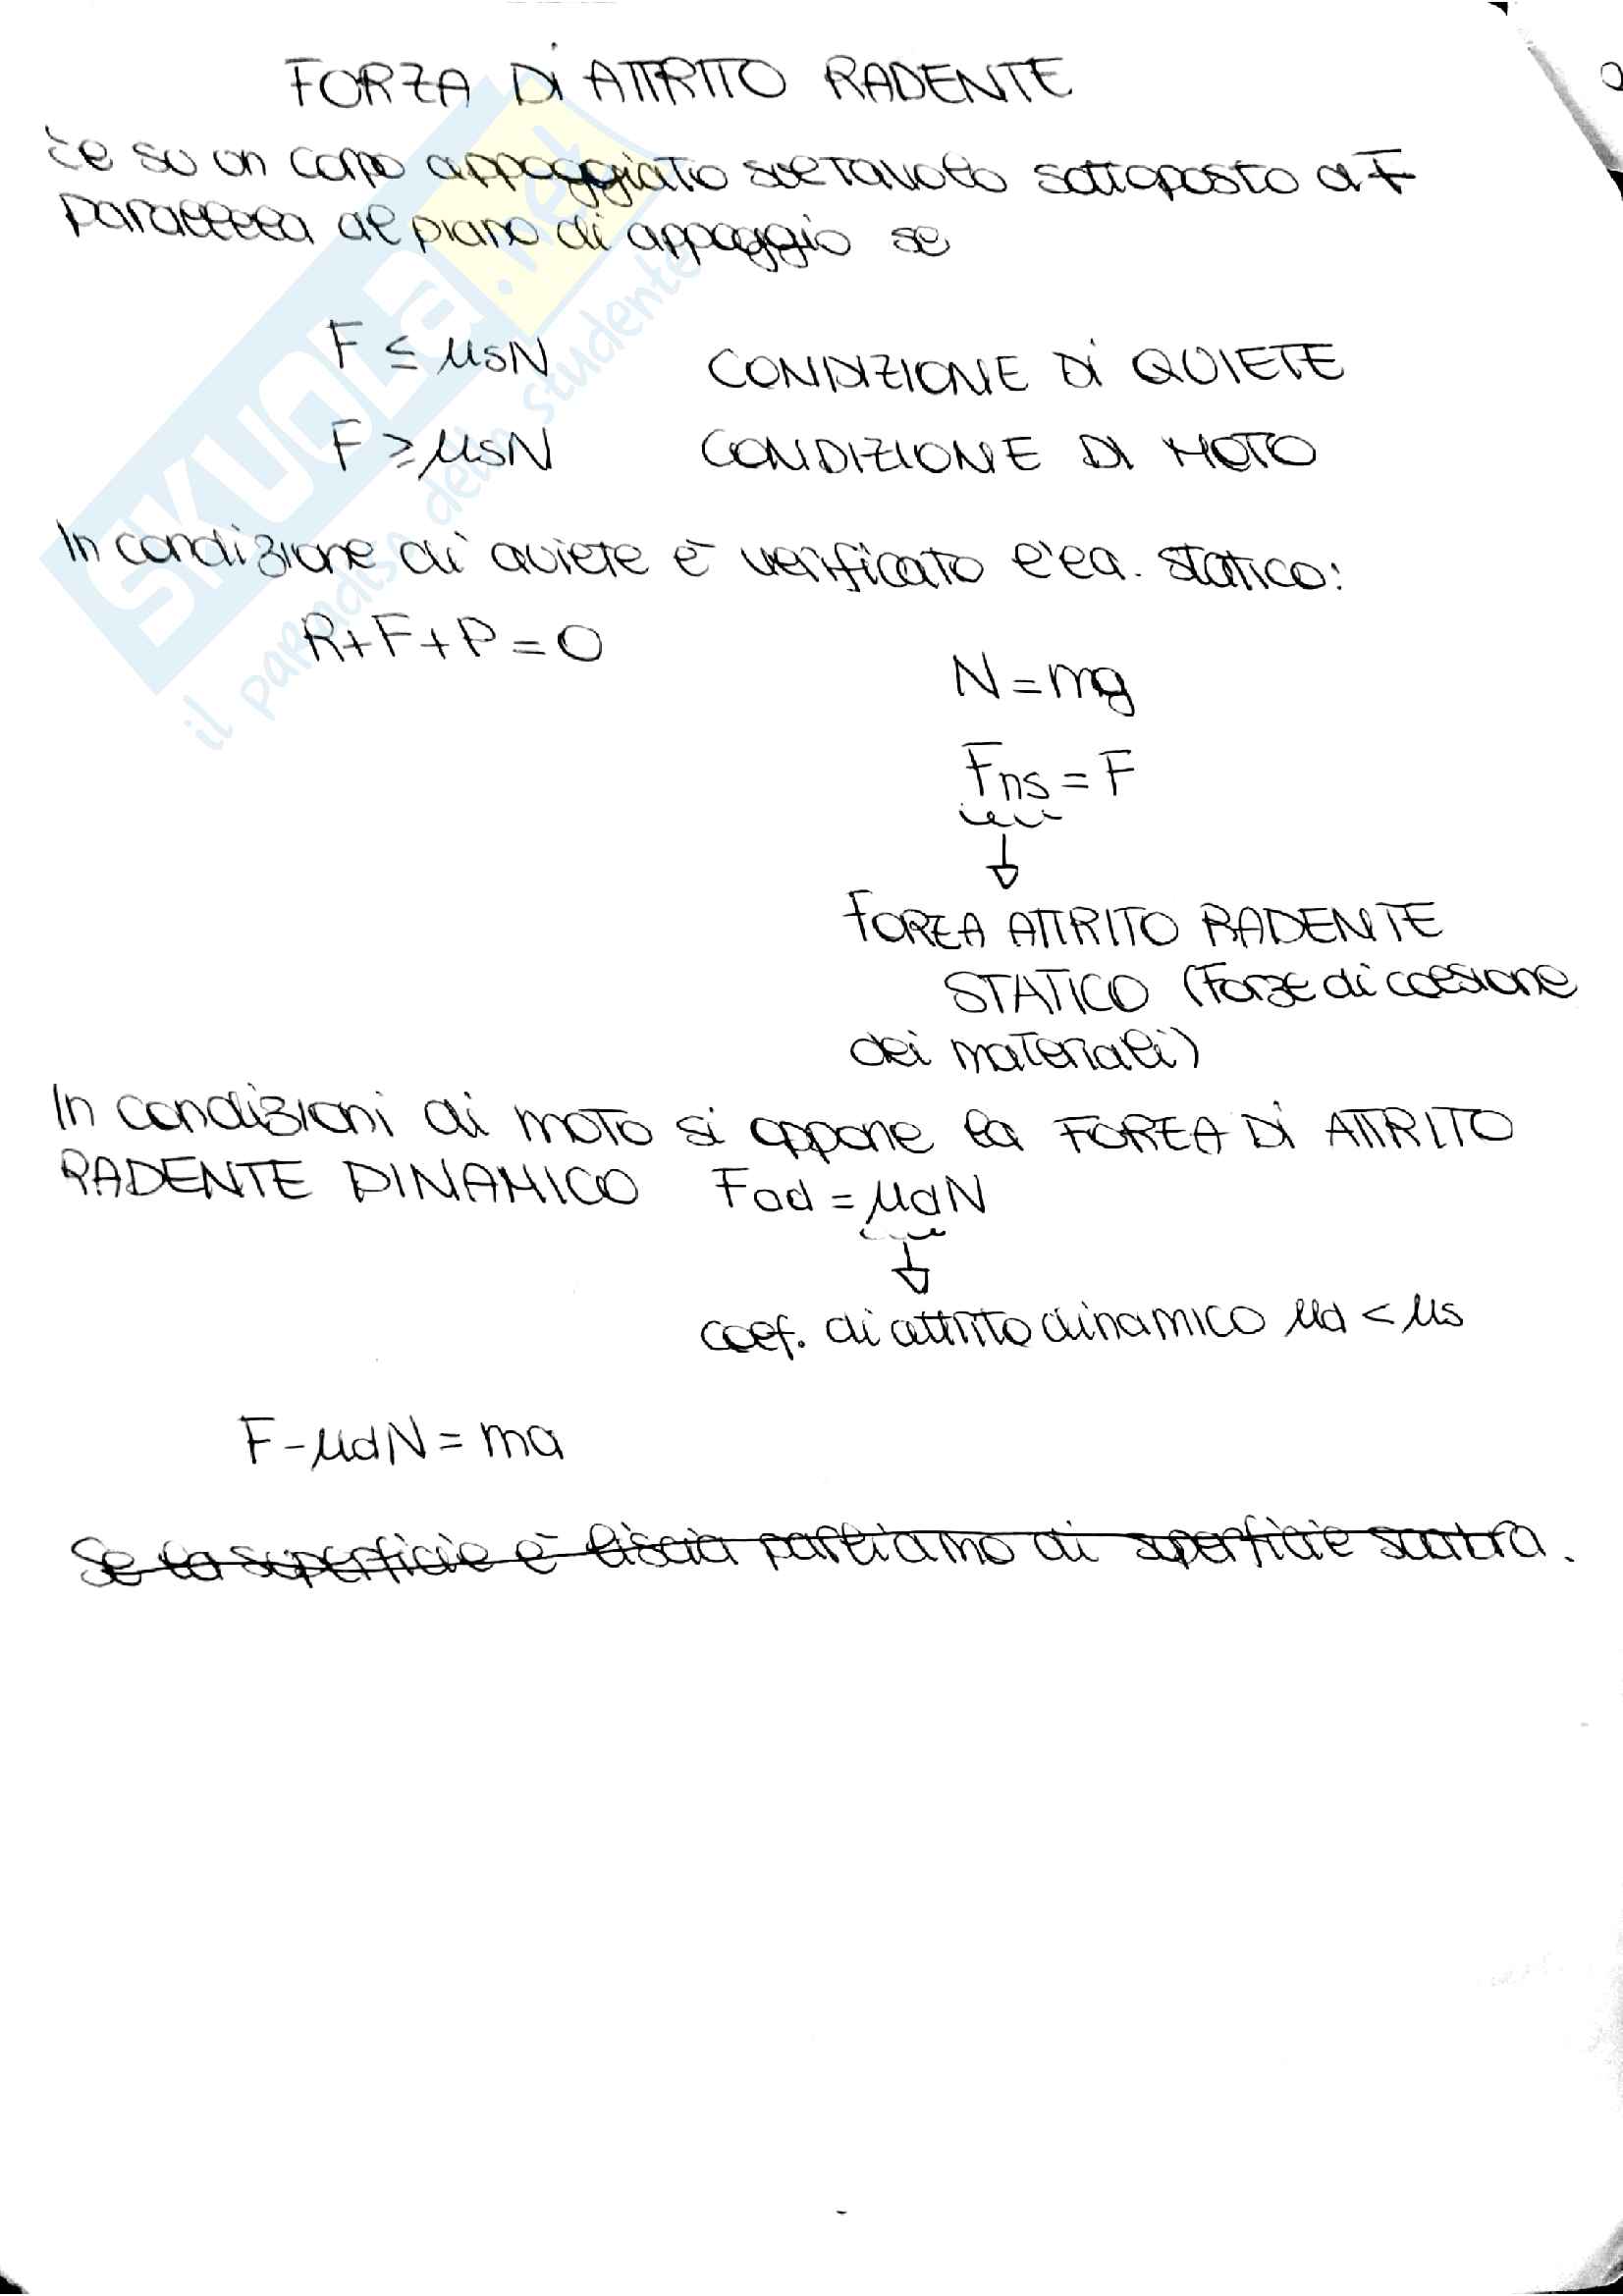 FORZA Di ATTRITO RADENTE
Se su un corpo appoggiato sul tavolo sottoposto a F
parallela al piano di appoggio se
F ≤ μsN CONDIZIONE Di QUIETE
F ≥ μsN CONDIZIONE DI MOTO
In condizione di quiete è verificato l'eq. statico:
R+F+P=0
N=mg
Fns=F
FORZA ATTRITO RADENTE
STATICO (Forze di coesione
dei materiali)
In condizioni di moto si oppone la FORZA Di ATTRITO
RADENTE DINAMICO Fad=μdN
coef. di attrito dinamico μd < μs
F-μdN=ma
Se la superficie è liscia parliamo di superficie scabra.
SKUOLA.net
il paradiso dello studente